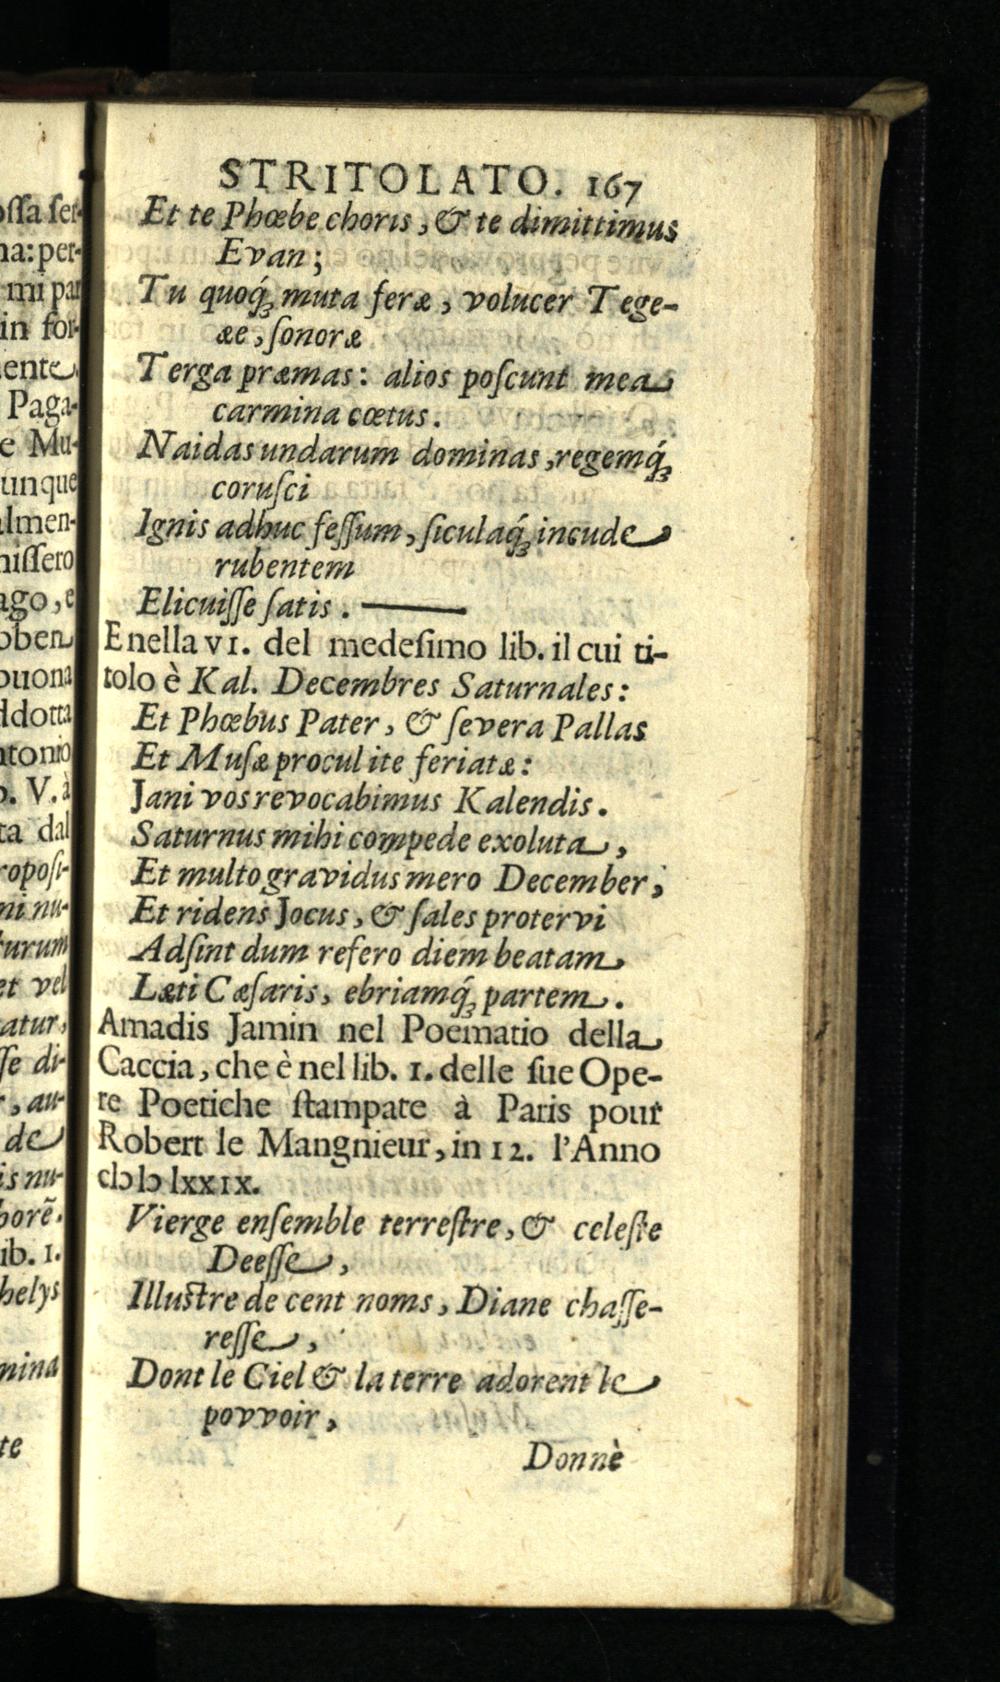 STRITOLATO. 167
Et te Phœbe choris, & te dimittimus
Evan;
Tu quoq́; muta feræ, volucer Tege-
æe, ſonoræ
Terga præmas: alios poſcunt mea
carmina cœtus.
Naidas undarum dominas, regemq́;
coruſci
Ignis adhuc feſſum, ſiculaq́; incude
rubentem
Elicuiſſe ſatis. ———
E nella VI. del medeſimo lib. il cui ti-
tolo è Kal. Decembres Saturnales:
Et Phœbus Pater, & ſevera Pallas
Et Muſæ procul ite feriatæ:
Jani vos revocabimus Kalendis.
Saturnus mihi compede exoluta,
Et multo gravidus mero December;
Et ridens Jocus, & ſales protervi
Adſint dum refero diem beatam
Læti Cæſaris, ebriamq́; partem.
Amadis Jamin nel Poematio della
Caccia, che è nel lib. 1. delle ſue Ope-
re Poetiche ſtampate à Paris pour
Robert le Mangnieur, in 12. l'Anno
cIↄ Iↄ lxxix.
Vierge enſemble terreſtre, & celeſte
Deeſſe,
Illuſtre de cent noms, Diane chaſſe-
reſſe,
Dont le Ciel & la terre adorent le
povvoir,
Donnè
oſſa ſer-
na: per-
mi par
in for-
iente
Paga-
e Mu-
unque
almen-
niſſero
ago, e
oben
buona
ddotta
ntonio
o. V. à
ta dal
ropoſi-
ni nu-
turum
et vel
atur,
ſſe di-
r, au-
de
is nu-
horẽ.
ib. 1.
helys
mina
te